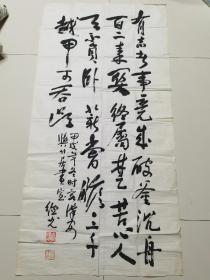 有志者事竟成破釜沉舟
百二秦关终属楚苦心人
天不负卧薪尝胆三千
越甲可吞吴
甲戌年冬时客